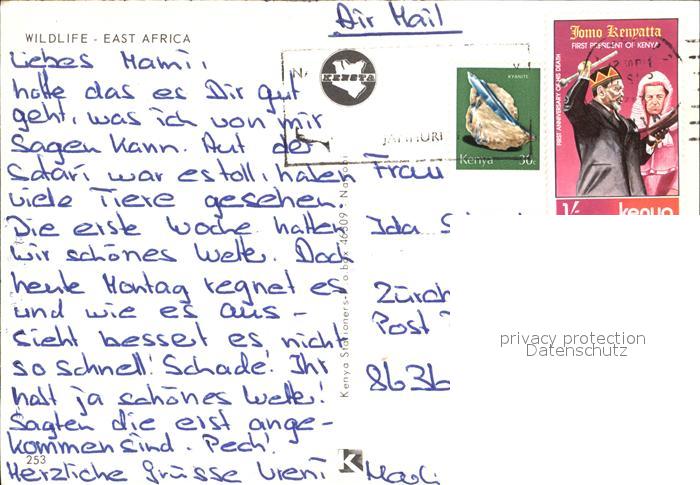 Air Mail
WILDLIFE - EAST AFRICA
Liebes Mami,
hoffe das es Dir gut
geht, was ich von mir
Sagen kann. Auf der
Safari war es toll, haben
viele Tiere gesehen.
Die erste Woche hatten
wir schönes Wetter. Doch
heute Montag regnet es
und wie es aus-
sieht bessert es nicht
so schnell! Schade! Ihr
habt ja schönes Wetter!
Sagten die erst ange-
kommen sind. Pech!
253
Herzliche Grüsse Vreni
KENSTA
JAMHURI
KYANITE
Kenya 30c
Jomo Kenyatta
FIRST PRESIDENT OF KENYA
FIRST ANNIVERSARY OF HIS DEATH
1/- kenya
Kenya Stationers- P.o.box 46509 - Nairobi
K
Frau
Ida
Zürch
Post
8636
privacy protection
Datenschutz